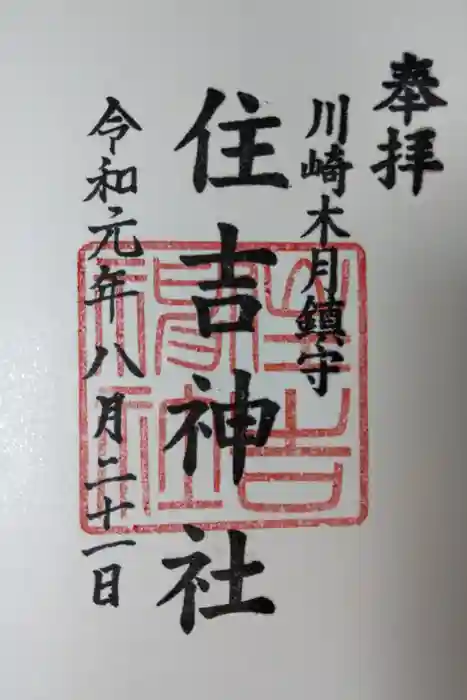 奉拝
川崎木月鎮守
住吉神社
令和元年八月二十一日